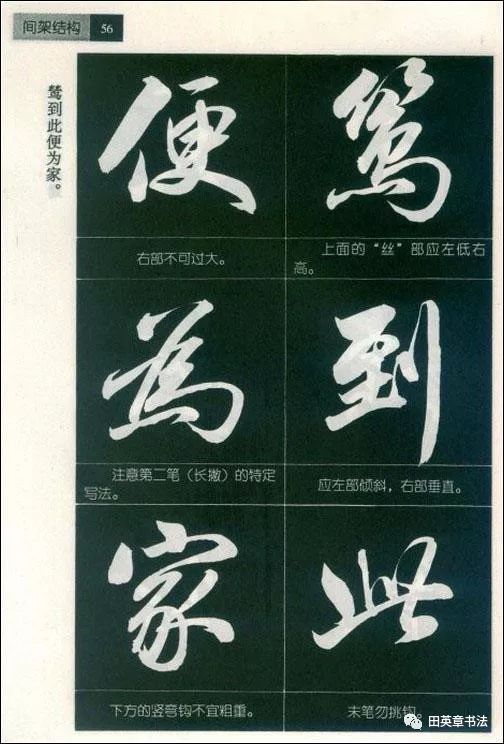 间架结构 56
鸶到此便为家。
鸶
上面的“丝”部应左低右
高。
到
应左部倾斜，右部垂直。
此
末笔勿挑钩。
便
右部不可过大。
為
注意第二笔（长撇）的特定
写法。
家
下方的竖弯钩不宜粗重。
田英章书法